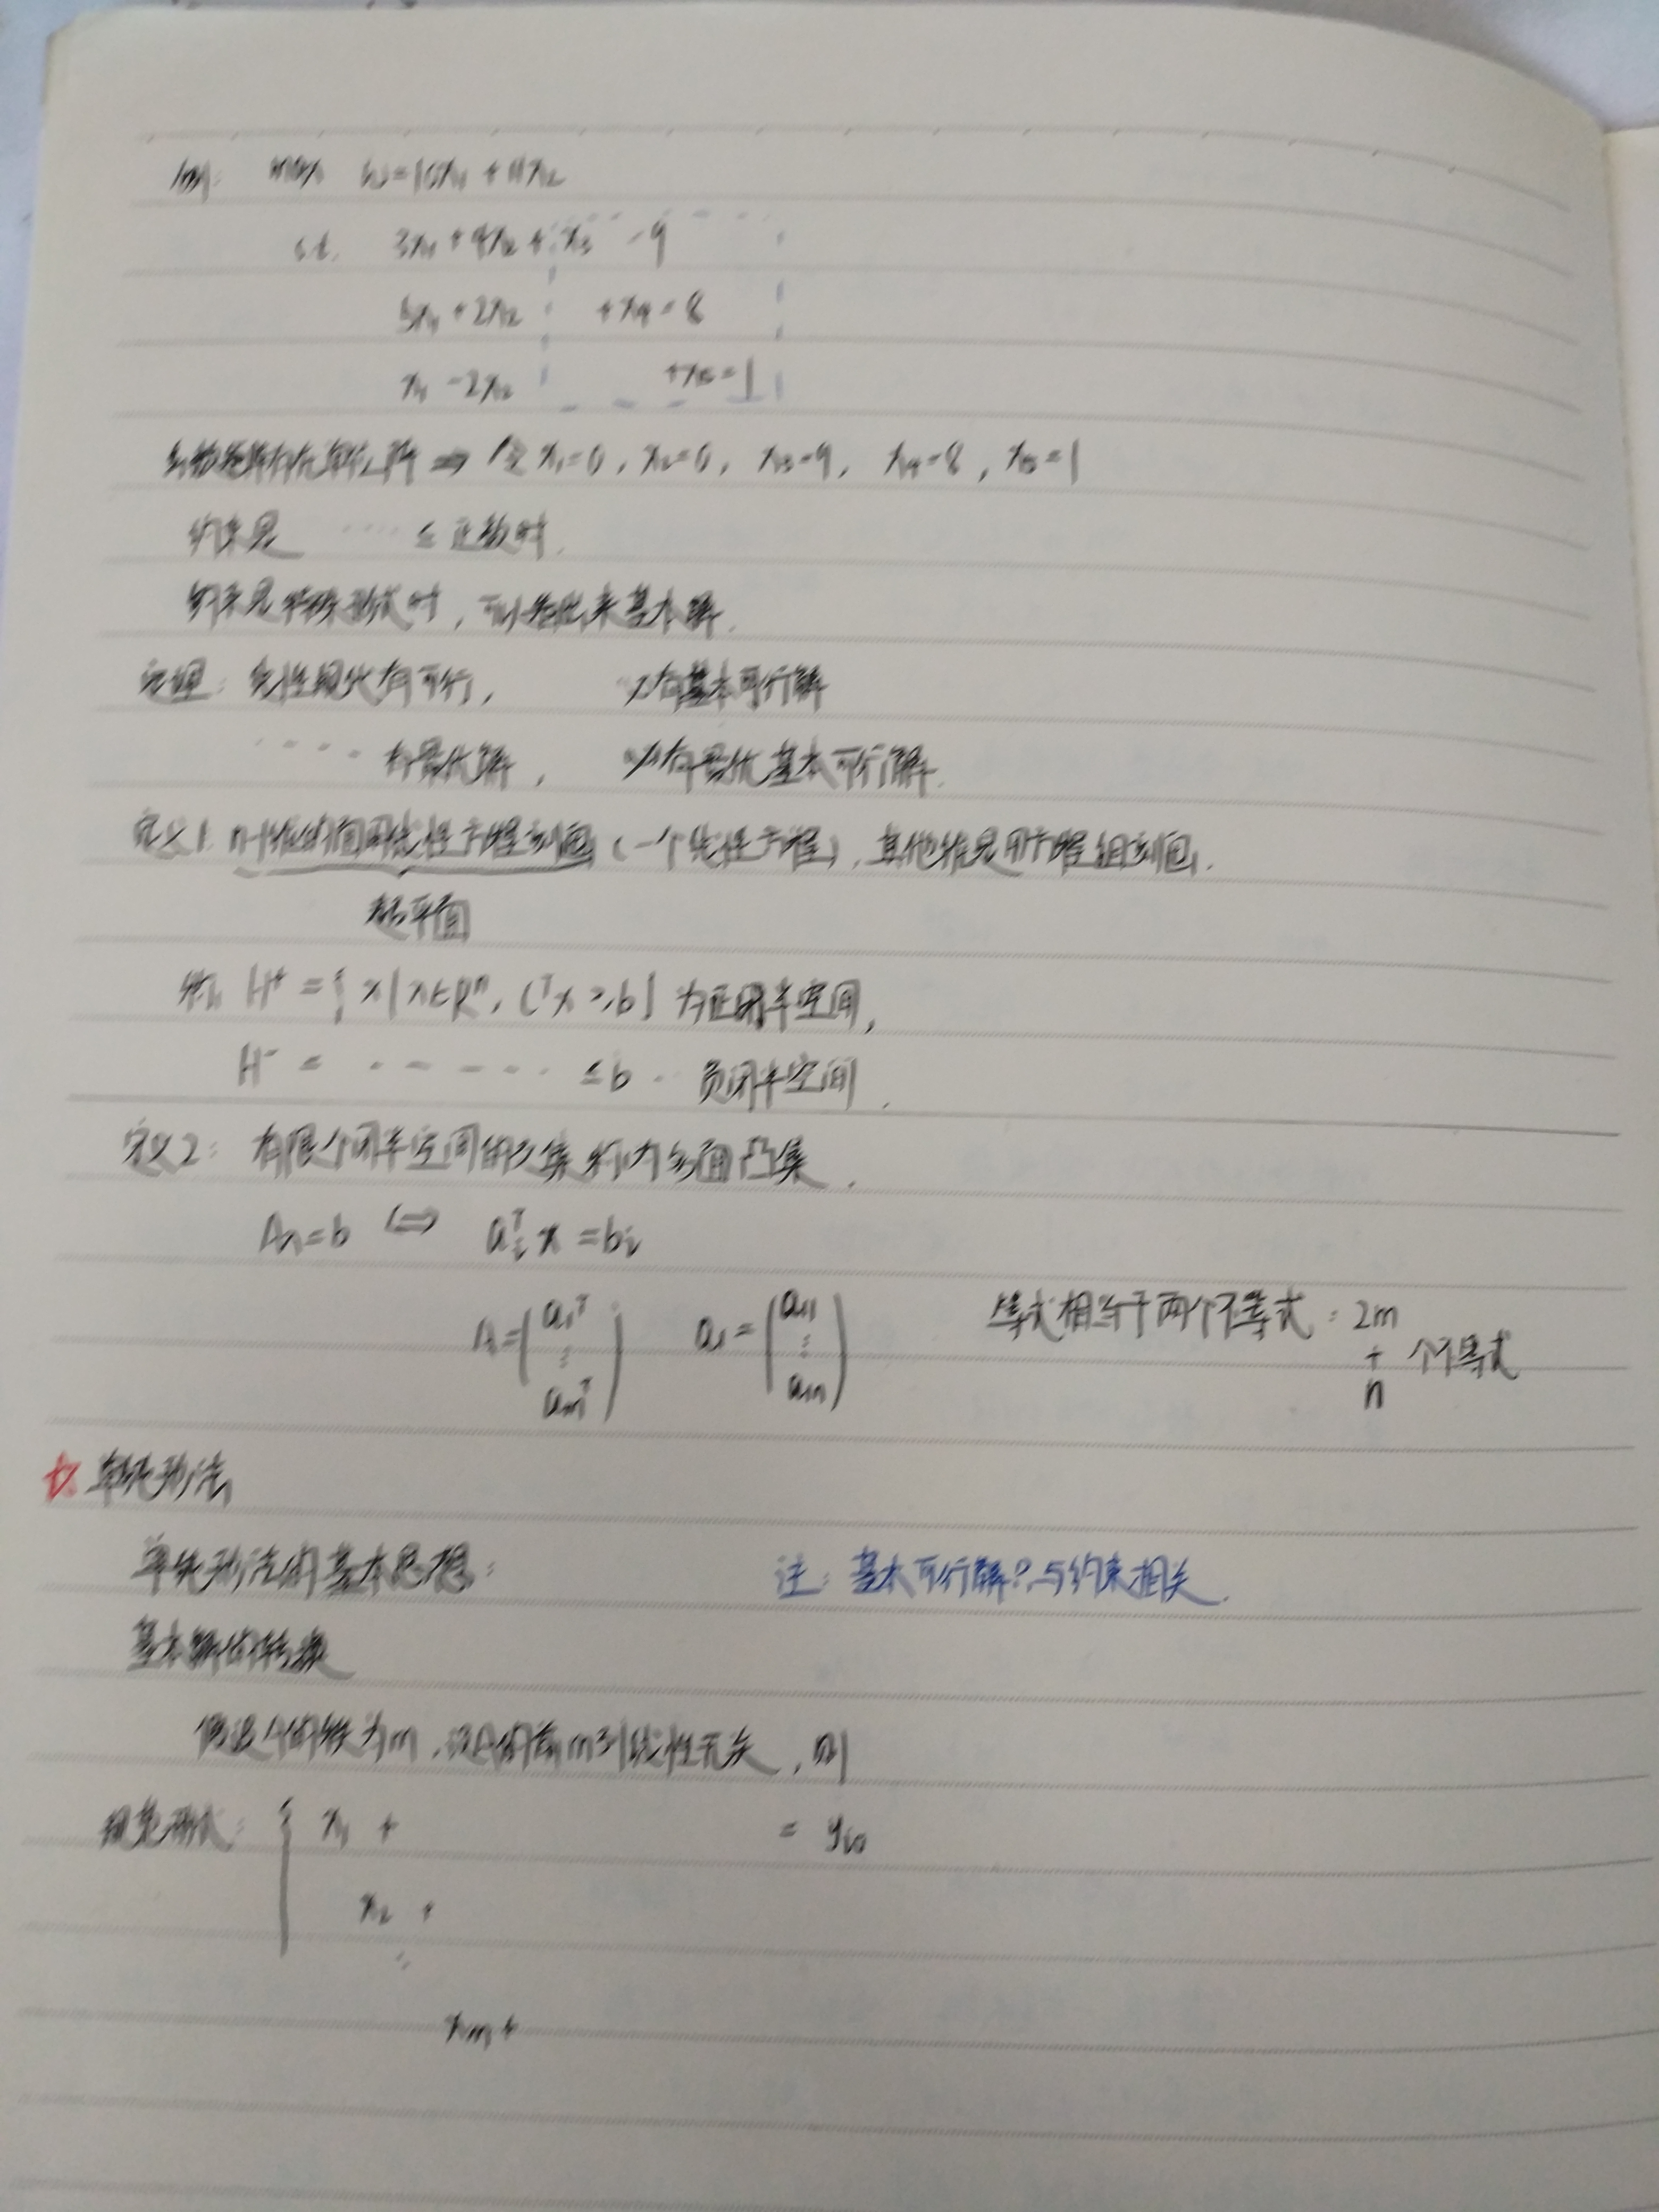 例: max w=10x₁+11x₂
s.t. 3x₁+4x₂+x₃=9
5x₁+2x₂ +x₄=8
x₁-2x₂ +x₅=1
⇒ 令x₁=0, x₂=0, x₃=9, x₄=8, x₅=1
约束是 ···· ≤正数时.
约束是 形式时, 可以 出来基本解.
定理: 线性规划有可行, 必有基本可行解
···· 有最优解, 必有最优基本可行解.
定义1: n-1维的面用线性方程刻画 (一个线性方程), 其他维是用方程组刻画.
超平面
称 H⁺={x|x∈Rⁿ, Cᵀx≥b} 为正闭半空间,
H⁻= ······ ≤b ·· 负闭半空间.
定义2: 有限个闭半空间的交集称为多面凸集.
Ax=b ⇔ aᵢᵀx=bᵢ
A=(a₁ᵀ ⋮ aₘᵀ) a₁=(a₁₁ ⋮ a₁ₙ) 等式相当于两个不等式: 2m + n 个不等式
☆ 单纯形法
单纯形法的基本思想: 注: 基本可行解?与约束相关.
基本解的转换
假设A的秩为m, 设A的前m列线性无关, 则
规范形式: { x₁ + = y₁₀
x₂ +
⋱
xₘ+